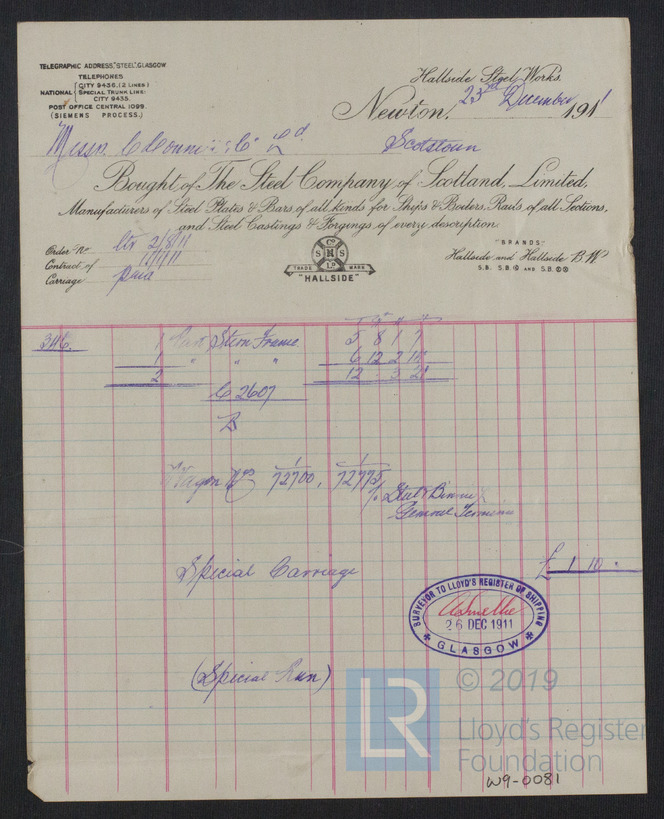 TELEGRAPHIC ADDRESS, "STEEL", GLASGOW
TELEPHONES
NATIONAL { CITY 9436, (2 LINES)
SPECIAL TRUNK LINE:
CITY 9435.
POST OFFICE CENTRAL 1099.
(SIEMENS PROCESS.)
Hallside Steel Works.
Newton, 23rd December 1911
Messrs Connell & Co Ld Scotstoun
Bought of The Steel Company of Scotland, Limited,
Manufacturers of Steel Plates & Bars, of all kinds for Ships & Boilers, Rails, of all Sections,
and Steel Castings & Forgings, of every description.
Order No Ltr 2/8/11
Contract of 17/7/11
Carriage paid
S Co H S LD
TRADE MARK
"HALLSIDE"
"BRANDS"
Hallside and Hallside B.W
S.B. S.B. AND S.B.
T C Q lb
346 1 Cast Stern Frame 5 8 1 7
1 " " " 6 12 2 14
2 12 - 3 21
C 2607
B
Wagon Nos 72700, 72775
General Terminus
Special Carriage £ 1 10 -
SURVEYOR TO LLOYD'S REGISTER OF SHIPPING
26 DEC 1911
GLASGOW
(Special Run)
LR
© 2019
Lloyd's Register
Foundation
W9-0081